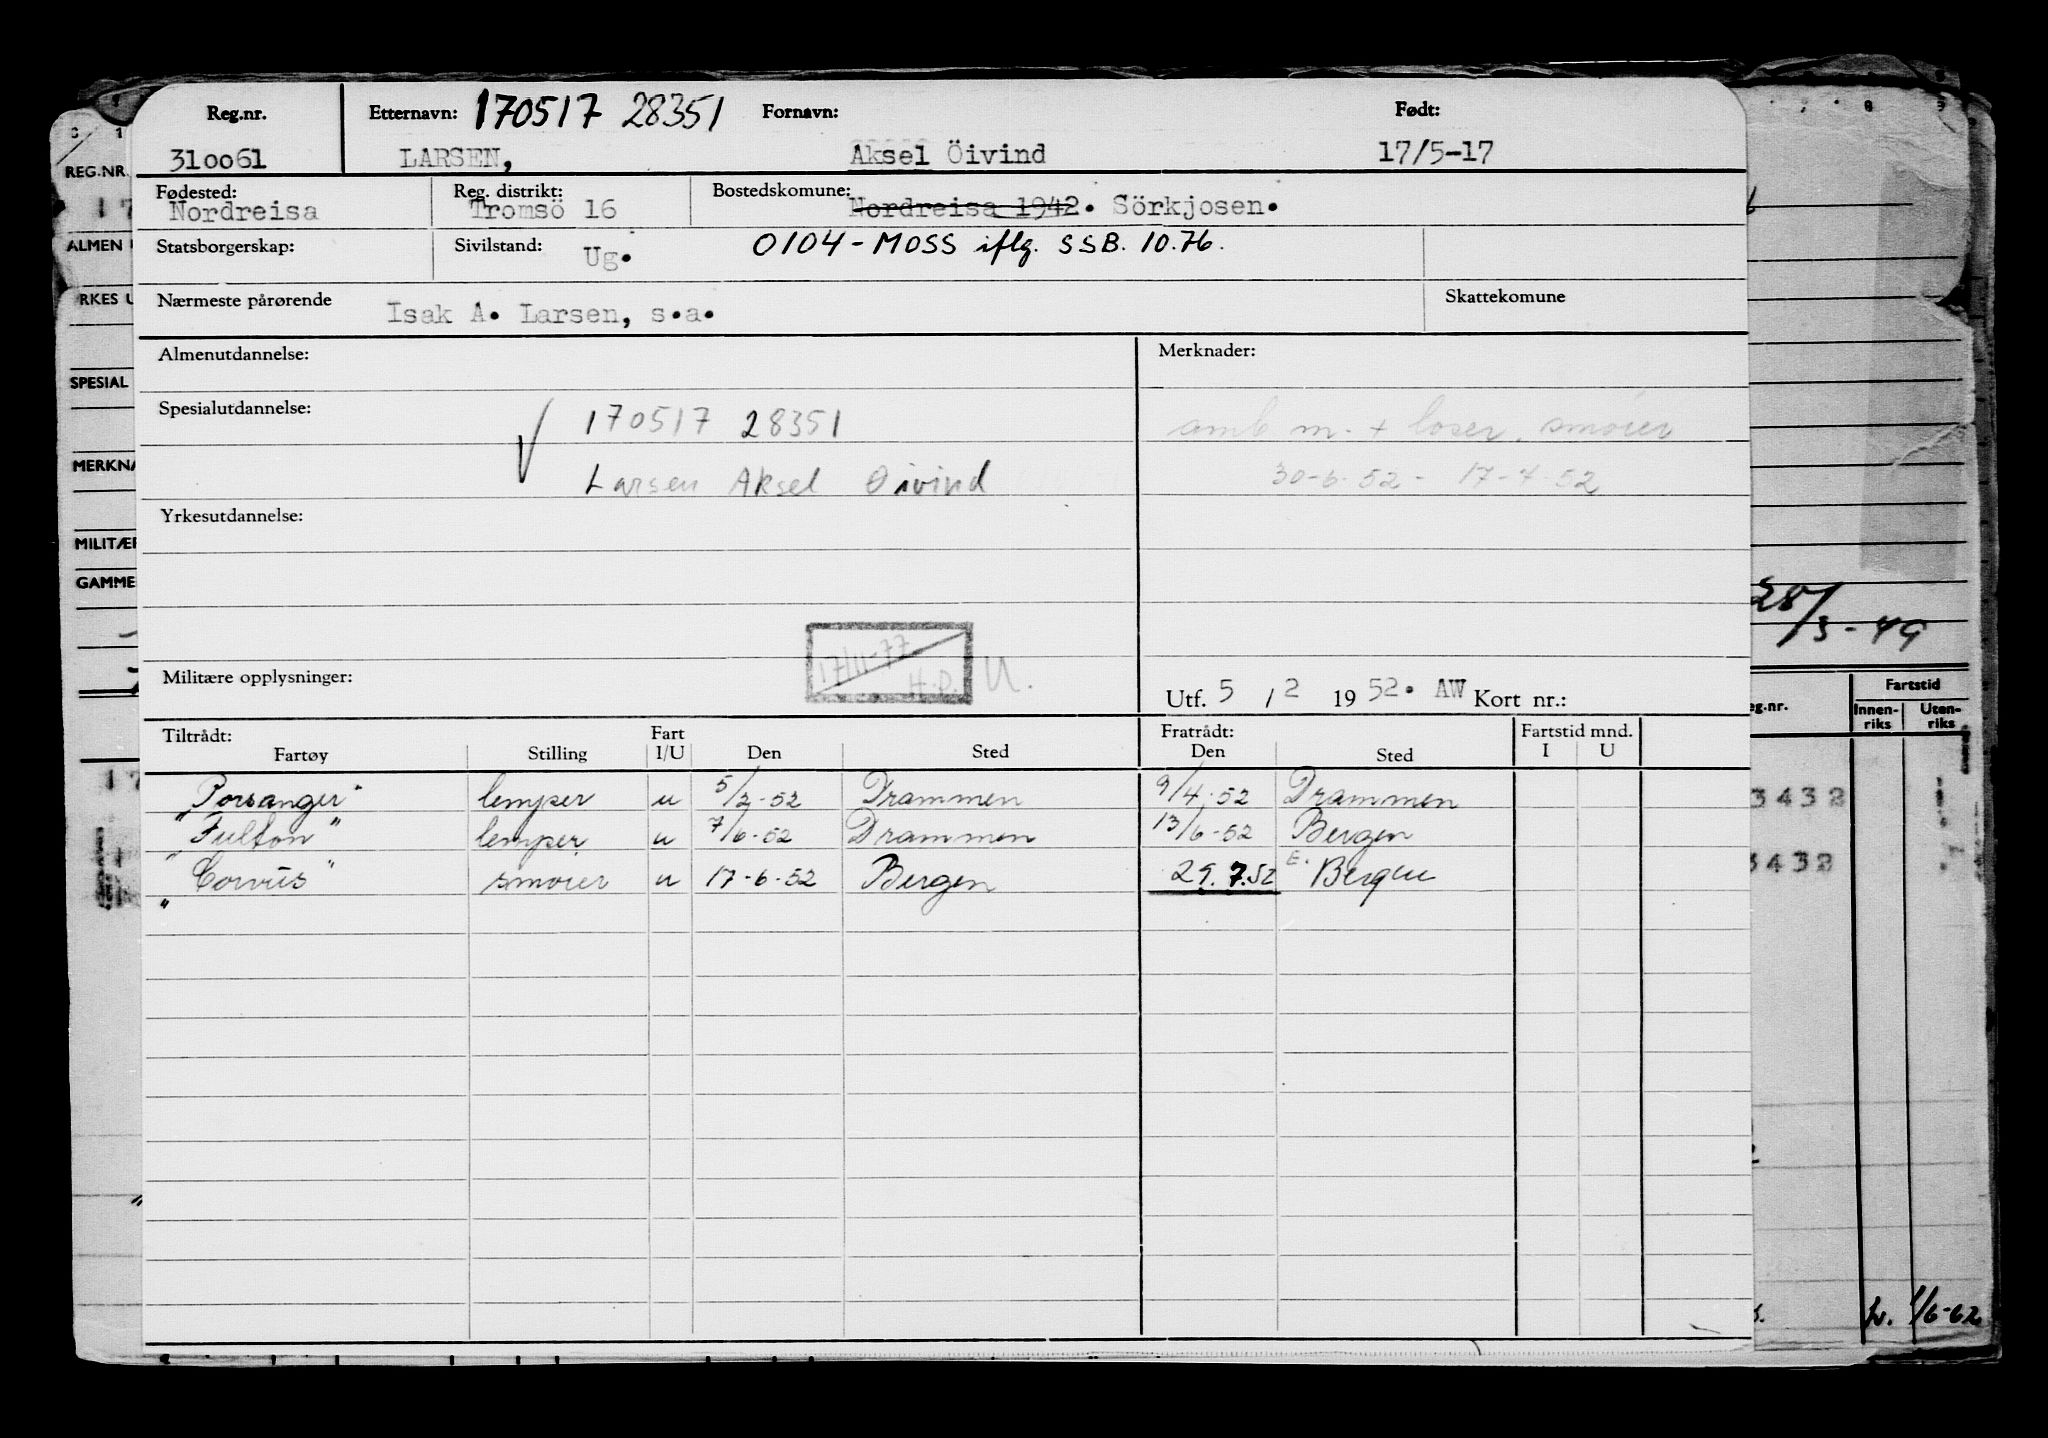 Reg.nr. Etternavn: 170517 28351 Fornavn: Født:
310061 LARSEN, Aksel Öivind 17/5-17
Fødested: Reg. distrikt: Bostedskomune:
Nordreisa Tromsö 16 Nordreisa 1942. Sörkjosen.
Statsborgerskap: Sivilstand: Ug. 0104 - MOSS iflg. SSB. 10.76.
Nærmeste pårørende Isak A. Larsen, s.a. Skattekomune
Almenutdannelse: Merknader:
Spesialutdannelse: 170517 28351 amb m. + loser. smører
Larsen Aksel Øivind 30-6-52 - 17-7-52
Yrkesutdannelse:
17/11-77 H.P. U.
Militære opplysninger: Utf. 5 / 2 19 52. AW Kort nr.:
Tiltrådt: Fart Fratrådt: Fartstid mnd.
Fartøy Stilling I/U Den Sted Den Sted I U
"Porsanger" lemper u 5/2-52 Drammen 9/4-52 Drammen
"Fulton" lemper u 7/6-52 Drammen 13/6-52 Bergen
"Corvus" smører u 17-6-52 Bergen 29.7.52 E. Bergen
"
REG.NR.
17
ALMEN
RKES U
SPESIAL
MERKNA
MILITÆR
GAMME
7 8 9
28/3-49
Fartstid
eg.nr. Innen-riks Uten-riks
3432
3432
1/6-62